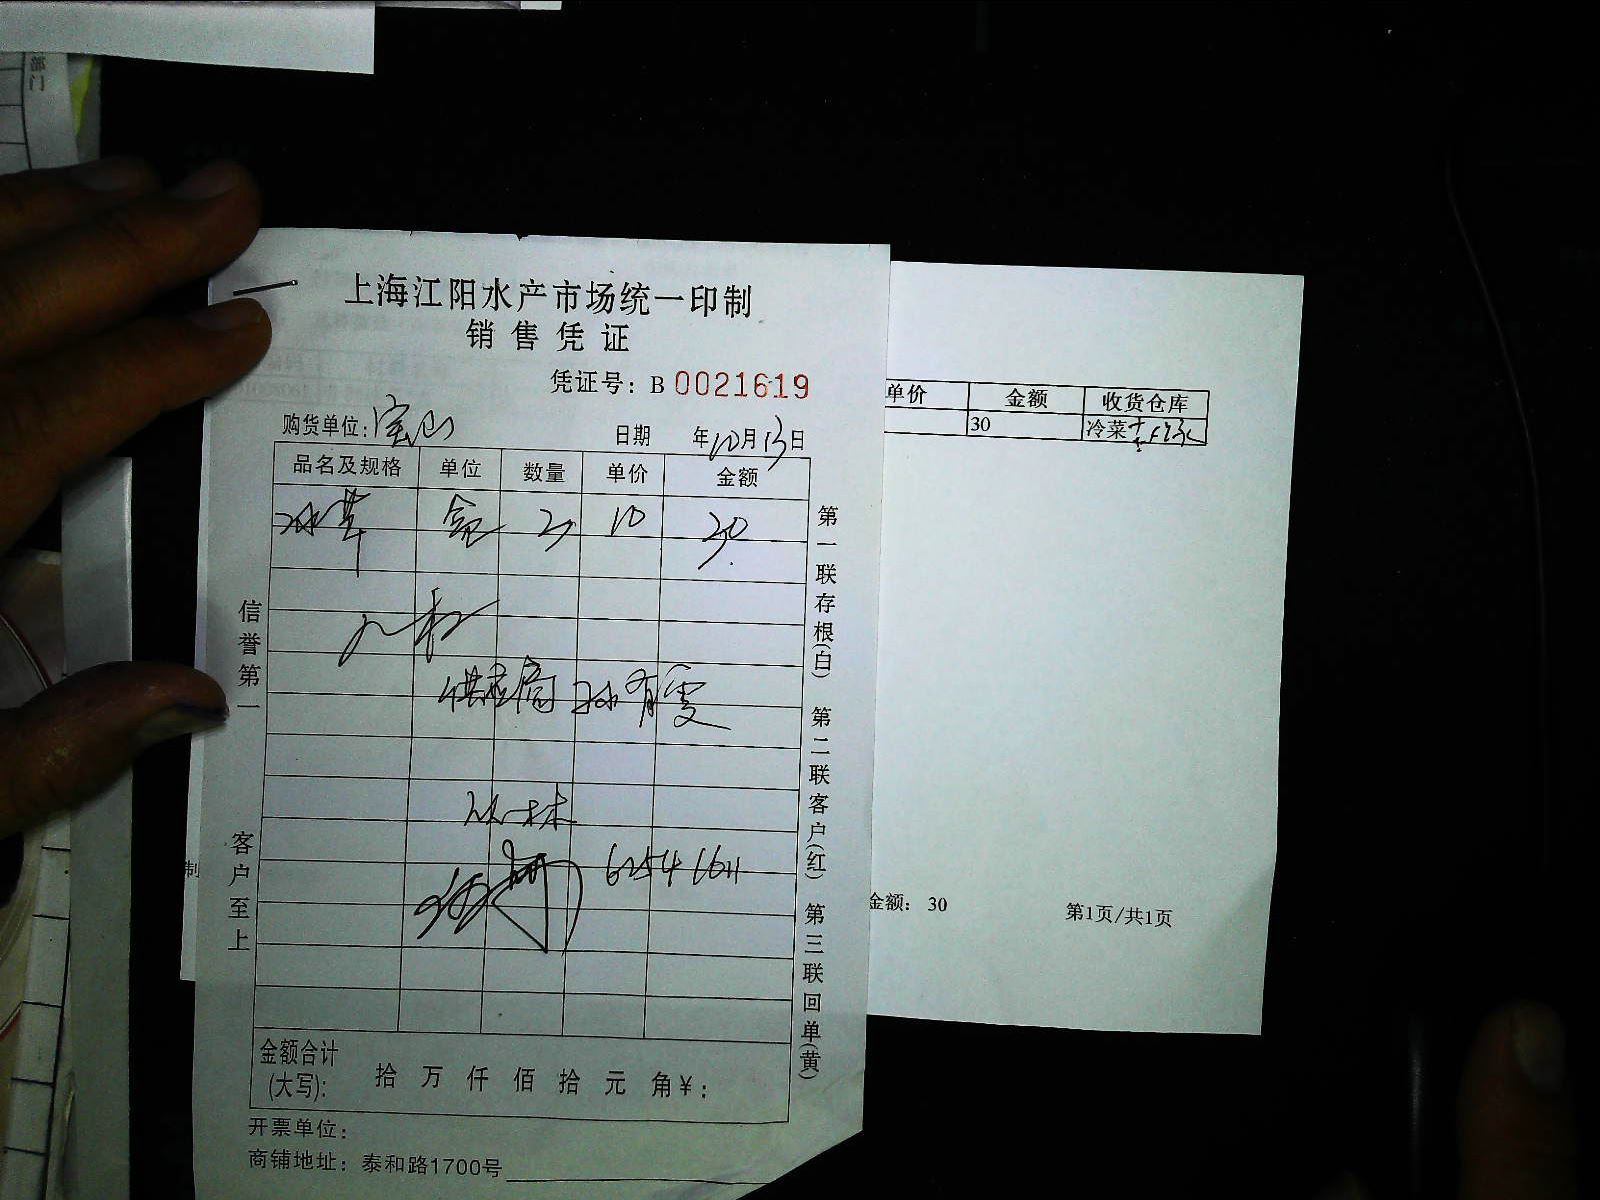 部门
上海江阳水产市场统一印制
销售凭证
凭证号: B 0021619
购货单位: 宝山
日期 年10月13日
品名及规格 单位 数量 单价 金额
冰草 盒 3 10 30
供应商 孙有雯
6254 1611
金额合计
(大写): 拾 万 仟 佰 拾 元 角 ¥:
开票单位:
商铺地址: 泰和路1700号
信誉第一
客户至上
第一联存根(白) 第二联客户(红) 第三联回单(黄)
单价 金额 收货仓库
30 冷菜
制
金额: 30
第1页/共1页